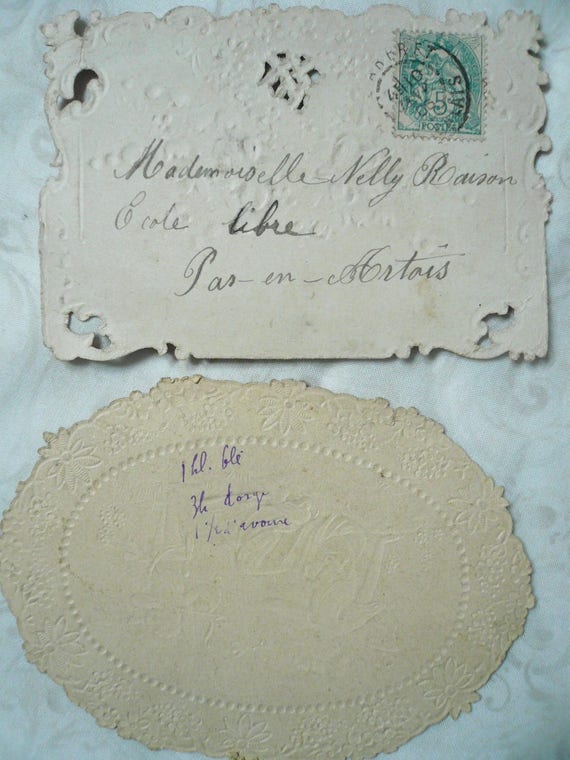 5
POSTES
Mademoiselle Nelly Raison
Ecole libre
Pas-en-Artois
1 hl. blé
3h d'orge
1 1/2 d'avoine